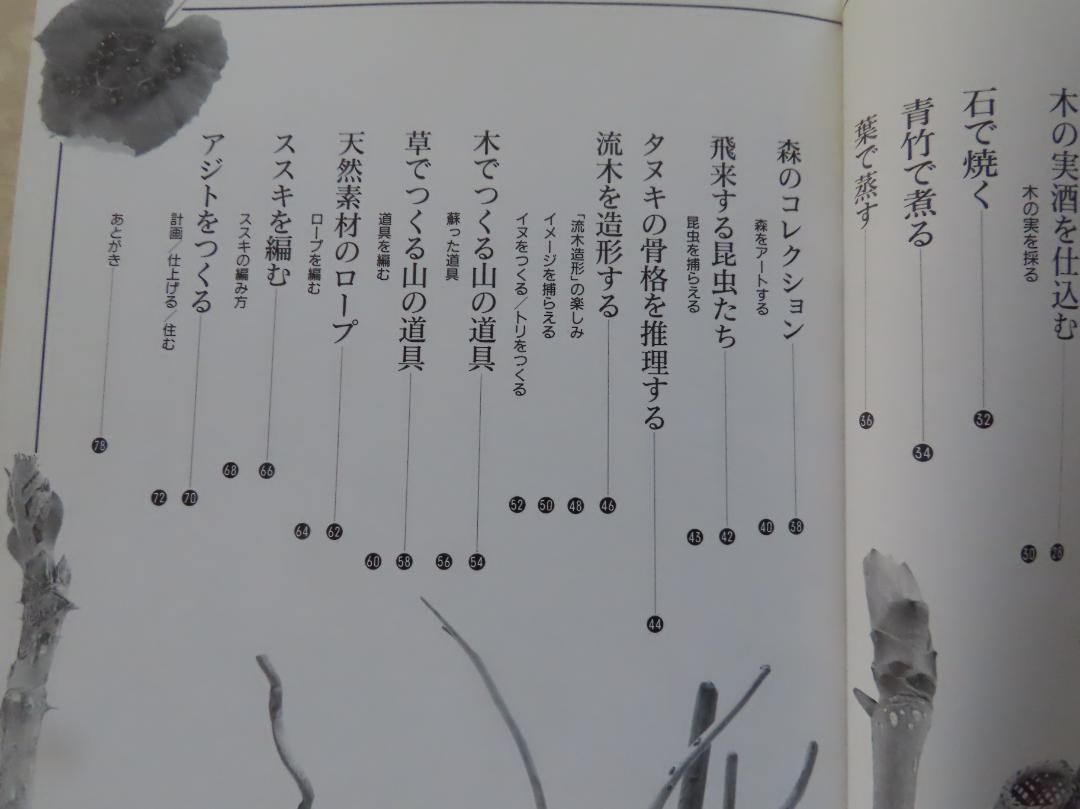 木の実酒を仕込む 28
木の実を採る 30
石で焼く 32
青竹で煮る 34
葉で蒸す 36
森のコレクション 38
森をアートする 40
飛来する昆虫たち 42
昆虫を捕らえる 43
タヌキの骨格を推理する 44
流木を造形する 46
「流木造形」の楽しみ 48
イメージを捕らえる 50
イヌをつくる／トリをつくる 52
木でつくる山の道具 54
蘇った道具 56
草でつくる山の道具 58
道具を編む 60
天然素材のロープ 62
ロープを編む 64
ススキを編む 66
ススキの編み方 68
アジトをつくる 70
計画／仕上げる／住む 72
あとがき 78